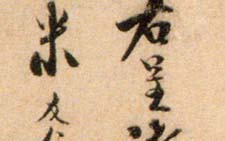 右呈
米友